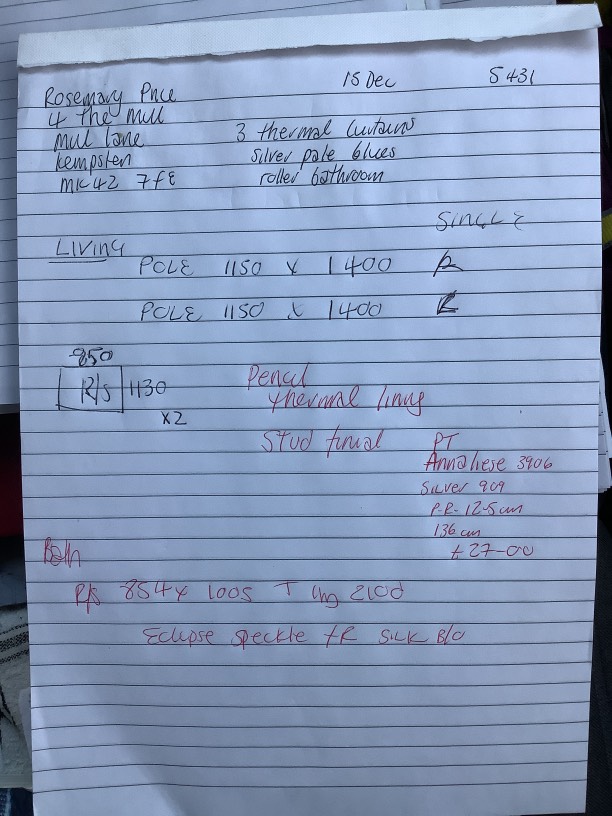 Rosemary Price 15 Dec 5431
4 The Mill
Mill Lane 3 thermal curtains
Kempsten silver pale blues
MK42 7FE roller bathroom
SINGLE
LIVING
POLE 1150 x 1400 R
POLE 1150 x 1400 L
850
R/S 1130
x2
Pencil
thermal lining
Stud finial
PT
Annaliese 3906
Silver 909
P-R- 12-5cm
136 cm
£27-00
Bath
R/s 854 x 1005 T 2100
Eclipse speckle FR SILK B/O